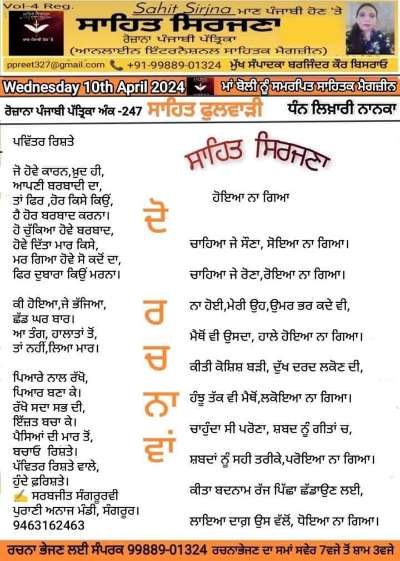 Vol-4 Reg.
Sahit Sirjna ਮਾਣ ਪੰਜਾਬੀ ਹੋਣ 'ਤੇ
ਸਾਹਿਤ ਸਿਰਜਣਾ
ਰੋਜ਼ਾਨਾ ਪੰਜਾਬੀ ਪੱਤ੍ਰਿਕਾ
(ਆਨਲਾਈਨ ਇੰਟਰਨੈਸ਼ਨਲ ਸਾਹਿਤਕ ਮੈਗਜ਼ੀਨ)
ppreet327@gmail.com +91-99889-01324 ਮੁੱਖ ਸੰਪਾਦਕਾ ਬਰਜਿੰਦਰ ਕੌਰ ਬਿਸਰਾਓ
Wednesday 10th April 2024 ਮਾਂ ਬੋਲੀ ਨੂੰ ਸਮਰਪਿਤ ਸਾਹਿਤਕ ਮੈਗਜ਼ੀਨ
ਰੋਜ਼ਾਨਾ ਪੰਜਾਬੀ ਪੱਤ੍ਰਿਕਾ ਅੰਕ -247 ਸਾਹਿਤ ਫੁਲਵਾੜੀ ਧੰਨ ਲਿਖਾਰੀ ਨਾਨਕਾ
ਪਵਿੱਤਰ ਰਿਸ਼ਤੇ
ਜੇ ਹੋਵੇ ਕਾਰਨ,ਖ਼ੁਦ ਹੀ,
ਆਪਣੀ ਬਰਬਾਦੀ ਦਾ,
ਤਾਂ ਫਿਰ ,ਹੋਰ ਕਿਸੇ ਕਿਉਂ,
ਹੈ ਹੋਰ ਬਰਬਾਦ ਕਰਨਾ।
ਹੋ ਚੁੱਕਿਆ ਹੋਵੇ ਬਰਬਾਦ,
ਹੋਵੇ ਦਿੱਤਾ ਮਾਰ ਕਿਸੇ,
ਮਰ ਗਿਆ ਹੋਵੇ ਸੋ ਕਦੋਂ ਦਾ,
ਫਿਰ ਦੁਬਾਰਾ ਕਿਉਂ ਮਰਨਾ।
ਕੀ ਹੋਇਆ,ਜੇ ਭੱਜਿਆ,
ਛੱਡ ਘਰ ਬਾਰ।
ਆ ਤੰਗ, ਹਾਲਾਤਾਂ ਤੋਂ,
ਤਾਂ ਨਹੀਂ,ਲਿਆ ਮਾਰ।
ਪਿਆਰੇ ਨਾਲ ਰੱਖੋ,
ਪਿਆਰ ਬਣਾ ਕੇ।
ਰੱਖੋ ਸਦਾ ਸਭ ਦੀ,
ਇੱਜ਼ਤ ਬਚਾ ਕੇ।
ਪੈਸਿਆਂ ਦੀ ਮਾਰ ਤੋਂ,
ਬਚਾਓ ਰਿਸ਼ਤੇ।
ਪੱਵਿਤਰ ਰਿਸ਼ਤੇ ਵਾਲੇ,
ਹੁੰਦੇ ਫ਼ਰਿਸ਼ਤੇ।
✍ ਸਰਬਜੀਤ ਸੰਗਰੂਰਵੀ
ਪੁਰਾਣੀ ਅਨਾਜ ਮੰਡੀ, ਸੰਗਰੂਰ।
9463162463
ਦੋ
ਰ
ਚ
ਨਾ
ਵਾਂ
ਸਾਹਿਤ ਸਿਰਜਣਾ
ਹੋਇਆ ਨਾ ਗਿਆ
ਚਾਹਿਆ ਜੇ ਸੌਣਾ, ਸੋਇਆ ਨਾ ਗਿਆ।
ਚਾਹਿਆ ਜੇ ਰੋਣਾ,ਰੋਇਆ ਨਾ ਗਿਆ।
ਨਾ ਹੋਈ,ਮੇਰੀ ਉਹ,ਉਮਰ ਭਰ ਕਦੇ ਵੀ,
ਮੈਥੋਂ ਵੀ ਉਸਦਾ, ਹਾਲੇ ਹੋਇਆ ਨਾ ਗਿਆ।
ਕੀਤੀ ਕੋਸ਼ਿਸ਼ ਬੜੀ, ਦੁੱਖ ਦਰਦ ਲਕੋਣ ਦੀ,
ਹੰਝੂ ਤੱਕ ਵੀ ਮੈਥੋਂ,ਲਕੋਇਆ ਨਾ ਗਿਆ।
ਚਾਹੁੰਦਾ ਸੀ ਪਰੋਣਾ, ਸ਼ਬਦ ਨੂੰ ਗੀਤਾਂ ਚ,
ਸ਼ਬਦਾਂ ਨੂੰ ਸਹੀ ਤਰੀਕੇ,ਪਰੋਇਆ ਨਾ ਗਿਆ।
ਕੀਤਾ ਬਦਨਾਮ ਰੱਜ ਪਿੱਛਾ ਛੱਡਾਉਣ ਲਈ,
ਲਾਇਆ ਦਾਗ਼ ਉਸ ਵੱਲੋਂ, ਧੋਇਆ ਨਾ ਗਿਆ।
ਰਚਨਾ ਭੇਜਣ ਲਈ ਸੰਪਰਕ 99889-01324 ਰਚਨਾਭੇਜਣ ਦਾ ਸਮਾਂ ਸਵੇਰ 7ਵਜੇ ਤੋਂ ਬਾਮ 3ਵਜੇ